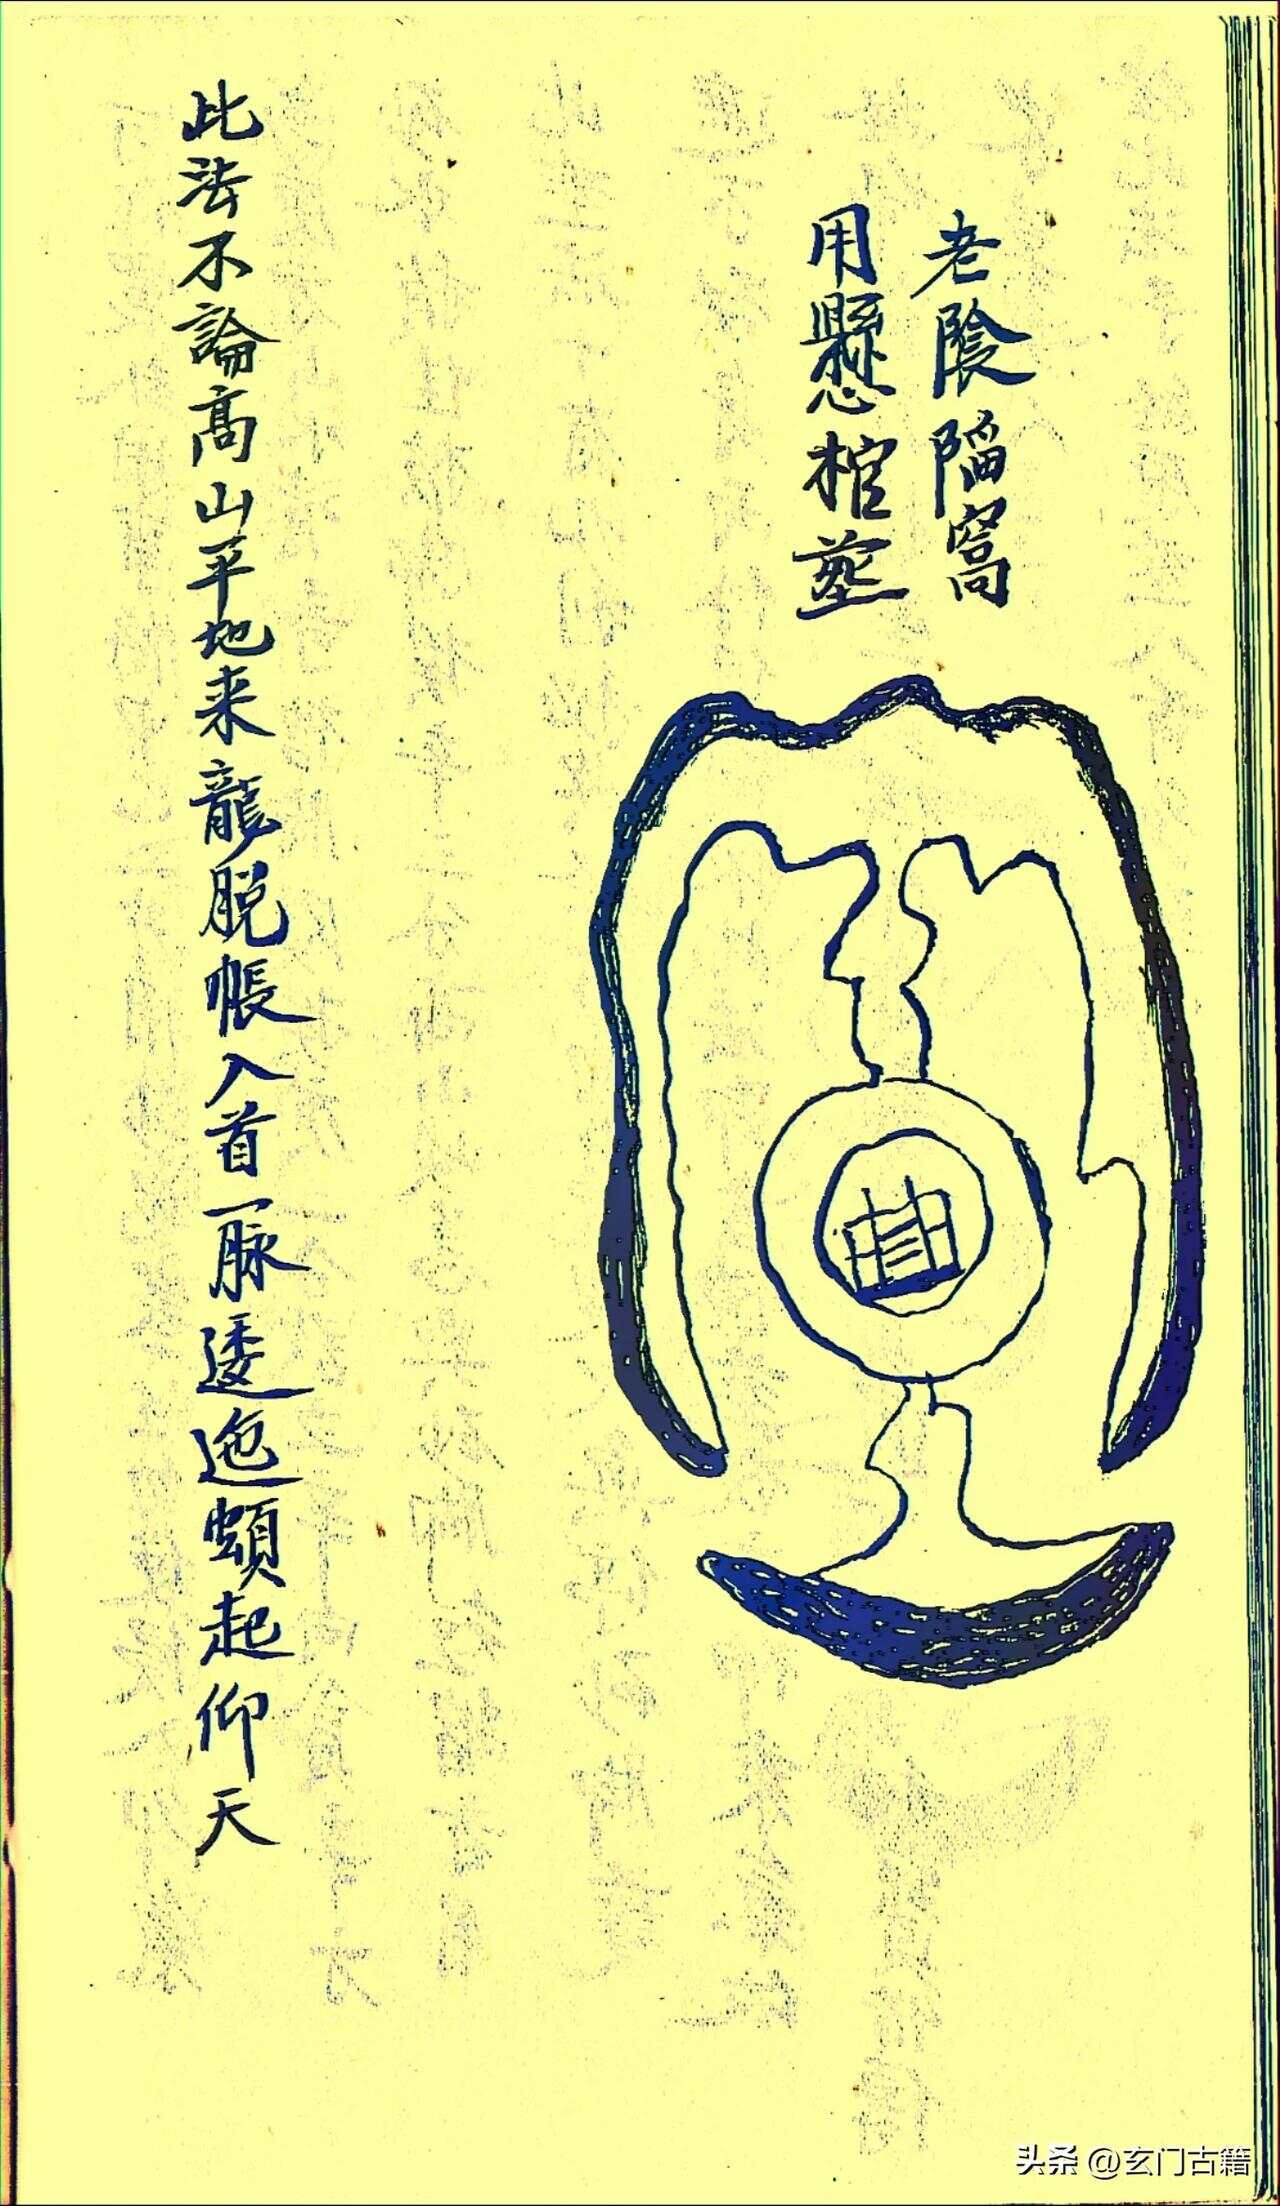 老陰陷窩
用懸棺塟
此法不論髙山平地来龍脱帳入首一脉逶迤頓起仰天
头条 @玄门古籍